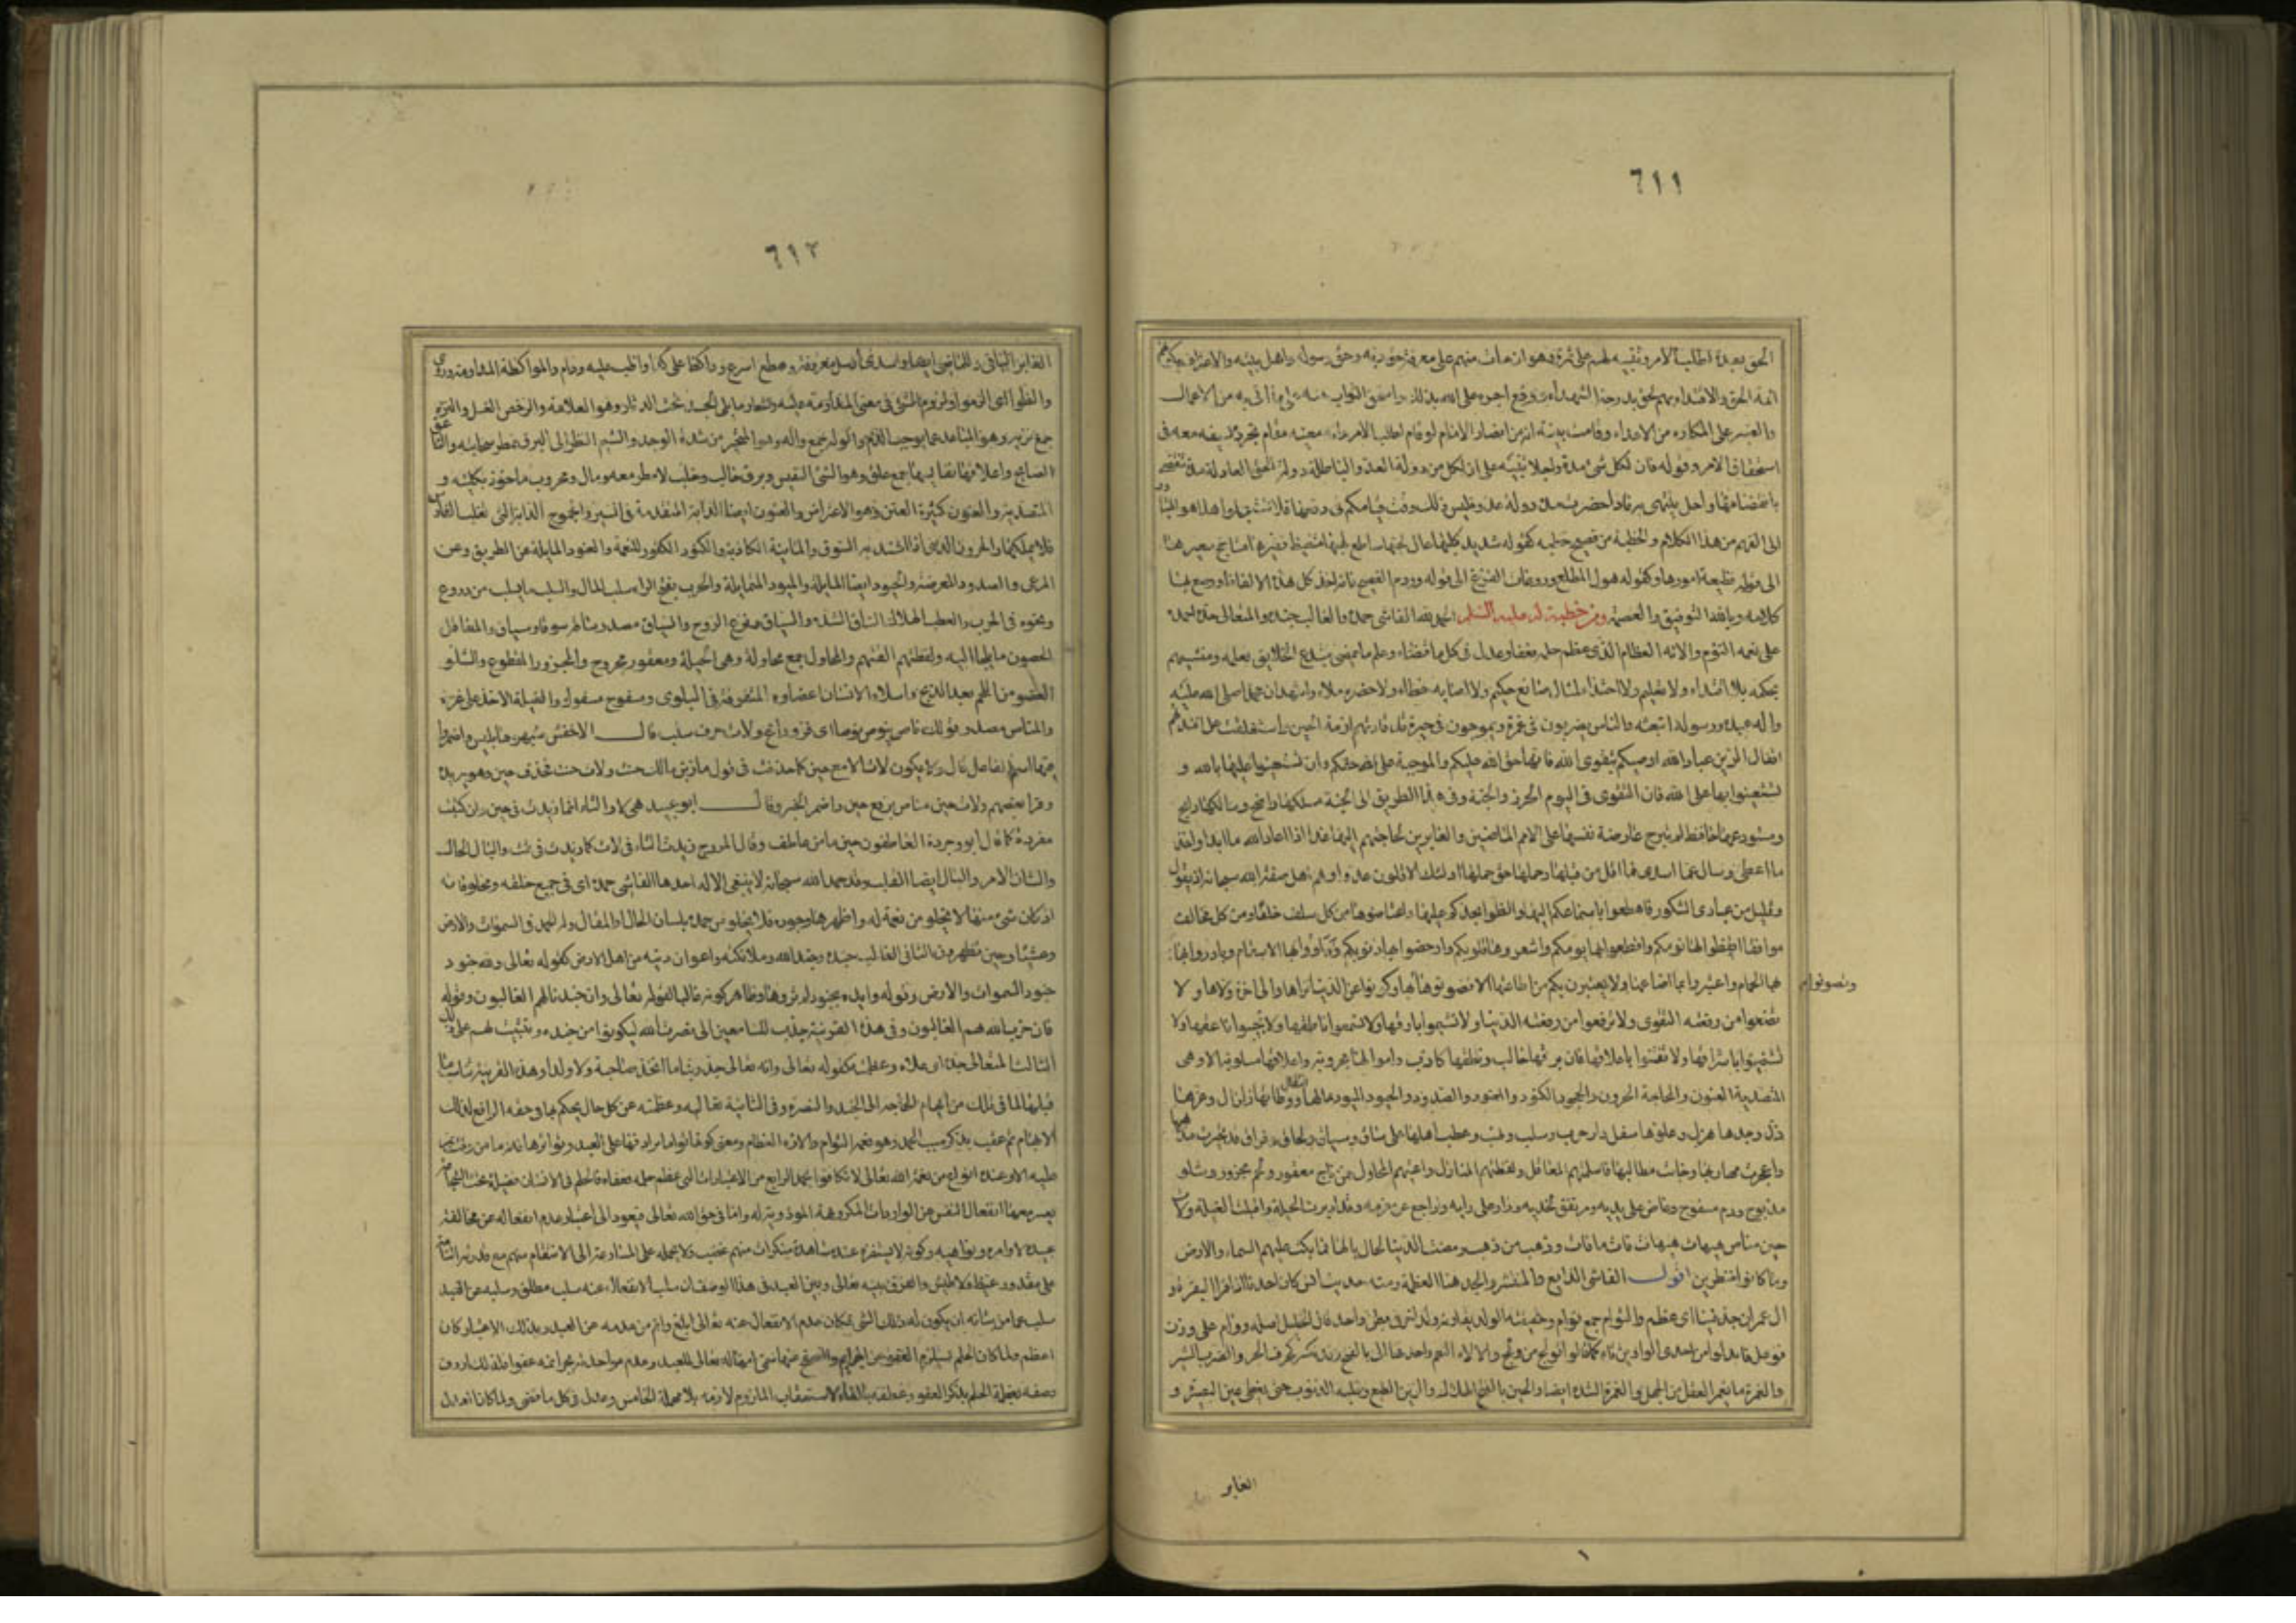 ٦١١
الحق بعدة اطلب الامر وتنبيه لهم على ثمرة وهو ان من مات منهم على معرفة حق ربه وحق رسوله واهل بيته والاعتراف بكونهم
ائمة الحق والاقتداء بهم لحق بدرجة الشهداء ووقع اجره على الله بذلك واستحق الثواب منه على ما اتى به من الاعمال
والصبر على المكاره من الاعداء وقامت نيته انه من انصار الامام لو قام لطلب الامر وانه معينه مقام تجرده بسيفه معه في
استحقاق الاجر وقوله فان لكل شئ مدة واجلا تنبيه على ان لكل من دولة العدو الباطلة ودولة الحق العادلة مدة تنقضى
بانقضائها واجل ينتهى به فاذا حضرت مدة دولة عدو فليس ذلك وقت قيامكم في دفعها فلا تستعجلوا هذا هو المتبادر
الى الفهم من هذا الكلام والخطبة من فصيح خطبه كقوله شديد كلبها عال لجبها ساطع لهبها متغيظ زفيرها متاجج سعيرها
الى قوله فظيعة امورها وكقوله هول المطلع وروعات الفزع الى قوله وردم الصفيح فانه اخذ كل هذه الالفاظ ورصع بها
كلامه وبالله التوفيق والعصمة ومن خطبة له عليه السلم الحمد لله الفاشى حمده والغالب جنده والمتعالى جده احمده
على نعمه التؤم والائه العظام الذى عظم حلمه فعفا وعدل في كل ما قضى وعلم ما يمضى ما مضى مبتدع الخلايق بعلمه ومنشيهم
بحكمه بلا اقتداء ولا تعليم ولا احتذاء لمثال صانع حكيم ولا اصابة خطاء ولا حضرة ملاء واشهد ان محمدا صلى الله عليه
واله عبده ورسوله ابتعثه والناس يضربون في غمرة ويموجون في حيرة قد قادتهم ازمة الحين واستغلقت على افئدتهم
اقفال الرين عباد الله اوصيكم بتقوى الله فانها حق الله عليكم والموجبة على الله حقكم وان تستعينوا عليها بالله و
تستعينوا بها على الله فان التقوى في اليوم الحرز والجنة وفى غد الطريق الى الجنة مسلكها واضح وسالكها رابح
ومستودعها حافظ لم تبرح عارضة نفسها على الامم الماضين والغابرين لحاجتهم اليها غدا اذا اعاد الله ما ابدا واخذ
ما اعطى وسال عما اسدى فما اقل من قبلها وحملها حق حملها اولئك الاقلون عددا وهم اهل صفة الله سبحانه اذ يقول
وقليل من عبادى الشكور فاهطعوا باسماعكم اليها والظوا بجدكم عليها واعتاضوها من كل سلف خلفا ومن كل مخالف
موافقا ايقظوا بها نومكم واقطعوا بها يومكم واشعروها قلوبكم وارحضوا بها ذنوبكم وداووا بها الاسقام وبادروا بها
الحمام واعتبروا بمن اضاعها ولا يعتبرن بكم من اطاعها الا فصونوها وتصونوا بها وكونوا عن الدنيا نزاها والى الاخرة ولاها ولا
وتصونوا بها
تضعوا من رفعته التقوى ولا ترفعوا من رفعته الدنيا ولا تشيموا بارقها ولا تسمعوا ناطقها ولا تجيبوا ناعقها ولا
تستضيؤا باشراقها ولا تفتنوا باعلاقها فان برقها خالب ونطقها كاذب واموالها محروبة واعلاقها مسلوبة الا وهى
المتصدية العنون والجامحة الحرون والجحود الكنود والعنود الصدود والحيود الميود حالها انتقال ووطاتها زلزال وعزها
ذل وجدها هزل وعلوها سفل دار حرب وسلب ونهب وعطب اهلها على ساق وسياق ولحاق وفراق قد تحيرت مذاهبها
واعجزت مهاربها وخابت مطالبها فاسلمتهم المعاقل ولفظتهم المنازل واعيتهم المحاول فمن ناج معقور ولحم مجزور وشلو
مذبوح ودم مسفوح وعاض على يديه ومرتفق بخديه وزار على رايه وراجع عن عزمه وقد ادبرت الحيلة واقبلت الغيلة ولات
حين مناص هيهات هيهات قد فات ما فات وذهب ما ذهب ومضت الدنيا لحال بالها فما بكت عليهم السماء والارض
وما كانوا منظرين اقول الفاشى الذايع والمنتشر والجد هنا العظمة ومنه حديث انس كان احدنا اذا قرا البقرة و
ال عمران جد فينا اى عظم والتوام جمع توام وحقيقته الولد يقارنه ولد اخر في بطن واحد قال الخليل اصله ووام على وزن
فوعل فابدلوا من احدى الواوين تاء كما قالوا تولج من ولج والالاء النعم واحدها الا بالفتح وقد يكسر والضرب السير
والغمرة ما يغمر العقل من الجهل والغمرة الشدة ايضا والحين بالفتح الهلاك والرين الطبع وغلبة الذنوب حتى تغطى عين البصيرة و
الغابر
٦١٢
الغابر الباقى والماضى ايضا واسدى ارسل معروفه واهطع اسرع والظ على كذا واظب عليه ودام والمواكظة المداومة
والظوا اى الزموا ولزوم الشئ في معنى المداومة عليه والشعار ما يلى الجسد تحت الدثار وهو العلامة والرحض الغسل والنزه
جمع نزيه وهو المباعد عما يوجب الذم والوله جمع واله وهو المتحير من شدة الوجد والشيم النظر الى البرق انتظارا لمطر سحابته والناعق
الصايح واعلاقها نفايسها جمع علق وهو الشئ النفيس وبرق خالب وخلب لا مطر معه ومال محروب ماخوذ بكليته و
المتصدية والعنون كثيرة العنن وهو الاعتراض والعنون ايضا الدابة المتقدمة في السير والجموح الدابة التى تغلب الفارس
فلا يملكها والحرون الذى اذا اشتد به السوق والماينة الكاذبة والكنود الكفور للنعمة والعنود المايلة عن الطريق وعن
المرعى والصدود المعرضة والحيود ايضا المايلة والميود المتمايلة والحرب بفتح الراء سلب المال والسلب ما يسلب من درع
ونحوه في الحرب والعطب الهلاك والساق الشدة والسياق نزع الروح والسياق مصدر ساقه سوقا وسياقا والمعاقل
الحصون وما يلجا اليه ولفظتهم القتهم والمحاول جمع محاولة وهى الحيلة ومعقور مجروح والمجزور المقطوع والشلو
العضو من اللحم بعد الذبح واشلاء الانسان اعضاوه المتفرقة في البلوى ومسفوح مسفوك والغيلة الاخذ على غرة
والمناص مصدر قولك ناص ينوص نوصا اى فر وراغ ولات حرف سلب قال الاخفش شبهوها بليس واضمروا
فيها اسم الفاعل قال ولا يكون لات الا مع حين وقد جاء حذفت في قول مازن بن مالك حنت ولات حنت فحذف حين وهو يريده
وقرا بعضهم ولات حين مناص برفع حين واضمر الخبر وقال ابو عبيد هى لا والتاء انما زيدت في حين وان كتبت
مفردة كما قال ابو وجزة العاطفون تحين ما من عاطف وقال المورج زيدت التاء في لات كما زيدت في ثمت والبال الحال
والشان الامر والبال ايضا القلب وقد حمد الله سبحانه باعتبارات لا ينبغى الا له احدها الفاشى حمده اى في جميع خلقه ومخلوقاته
اذ كان شئ منها لا يخلو من نعمة له واظهرها وجوده فلا يخلو من حمده بلسان الحال او المقال وله الحمد في السموات والارض
وعشيا وحين تظهرون الثانى الغالب جنده وجند الله وملائكته واعوان دينه من اهل الارض كقوله تعالى ولله جنود
جنود السموات والارض وقوله وايده بجنود لم تروها وظاهر كونه غالبا لقوله تعالى وان جندنا لهم الغالبون وقوله
فان حزب الله هم الغالبون وفى هذه القرينة جذب للسامعين الى نصرة الله ليكونوا من جنده وتثبيت لهم على ذلك
الثالث المتعالى جده اى علاه وعظمته كقوله تعالى وانه تعالى جد ربنا ما اتخذ صاحبة ولا ولدا وهذه القرينة
قبلها لما في تلك من ايهام الحاجة الى الجند والنصرة وفى الثانية تعاليه وعظمته عن كل حال يحكم بها وحقه الرافع لذلك
الايهام ثم عقب بذكر سبب الحمد وهو نعمه التوام والاؤه العظام ومعنى كونها توام ترادفها على العبد وتواترها فانه ما من
عليه الا وعنده انواع من نعمة الله تعالى لا تكافؤا بحمد الرابع من الاعتبارات الذى عظم حلمه فعفا فالحلم في الانسان فضيلة تحت الشجاعة
يعسر معها انفعال النفس عن الواردات المكروهة الموذية له واما في حق الله تعالى فيعود الى اعتبار عدم انفعاله عن مخالفة
عبيده لاوامره ونواهيه وكونه لا يستفزه عند مشاهدة منكرات منهم غضب ولا يحمله على المسارعة الى الانتقام منهم مع قدرته التامة
على كل مقدور غيظ ولا طيش والفرق بينه تعالى وبين العبد في هذا الوصف ان سلب الانفعال عنه سلب مطلق وسلبه عن العبد
سلب عما من شانه ان يكون له ذلك الشئ فكان عدم الانفعال عنه تعالى ابلغ واتم من عدمه عن العبد وبذلك الاعتبار كان
اعظم ولما كان الحلم يستلزم العفو عن الجرايم والصفح عنها سمى امهاله تعالى للعبد وعدم مواخذته بجرائمه عفوا فلذلك اردف
وصفه بعظمة الحلم بذكر العفو وعطفه بالفاء لاستعقاب الملزوم لازمه بلا مهلة الخامس وعدل في كل ما قضى ولما كان العدل